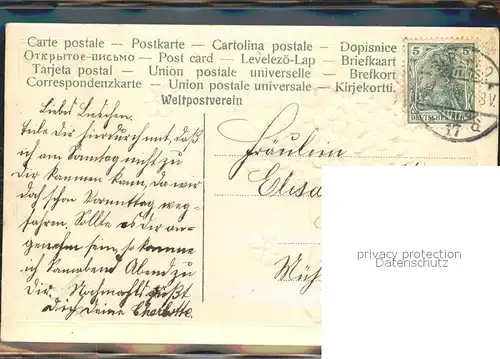 Carte postale — Postkarte — Cartolina postale — Dopisnice
Открытое-письмо — Post card — Levelező-Lap — Briefkaart
Tarjeta postal — Union postale universelle — Brefkort
Correspondenzkarte — Union postale universale — Kirjekortti.
Weltpostverein
5
Liebes Lieschen.
Teile dir hierdurch mit, daß
ich am Sonntag nicht zu
dir kommen kann, da wir
doch schon Vormittag weg-
fahren. Sollte es dir an-
genehm sein, so komme
ich Abend zu
dir. Nochmals grüßt
Dich deine Charlotte.
Fräulein
Elisa
Müh
privacy protection
Datenschutz